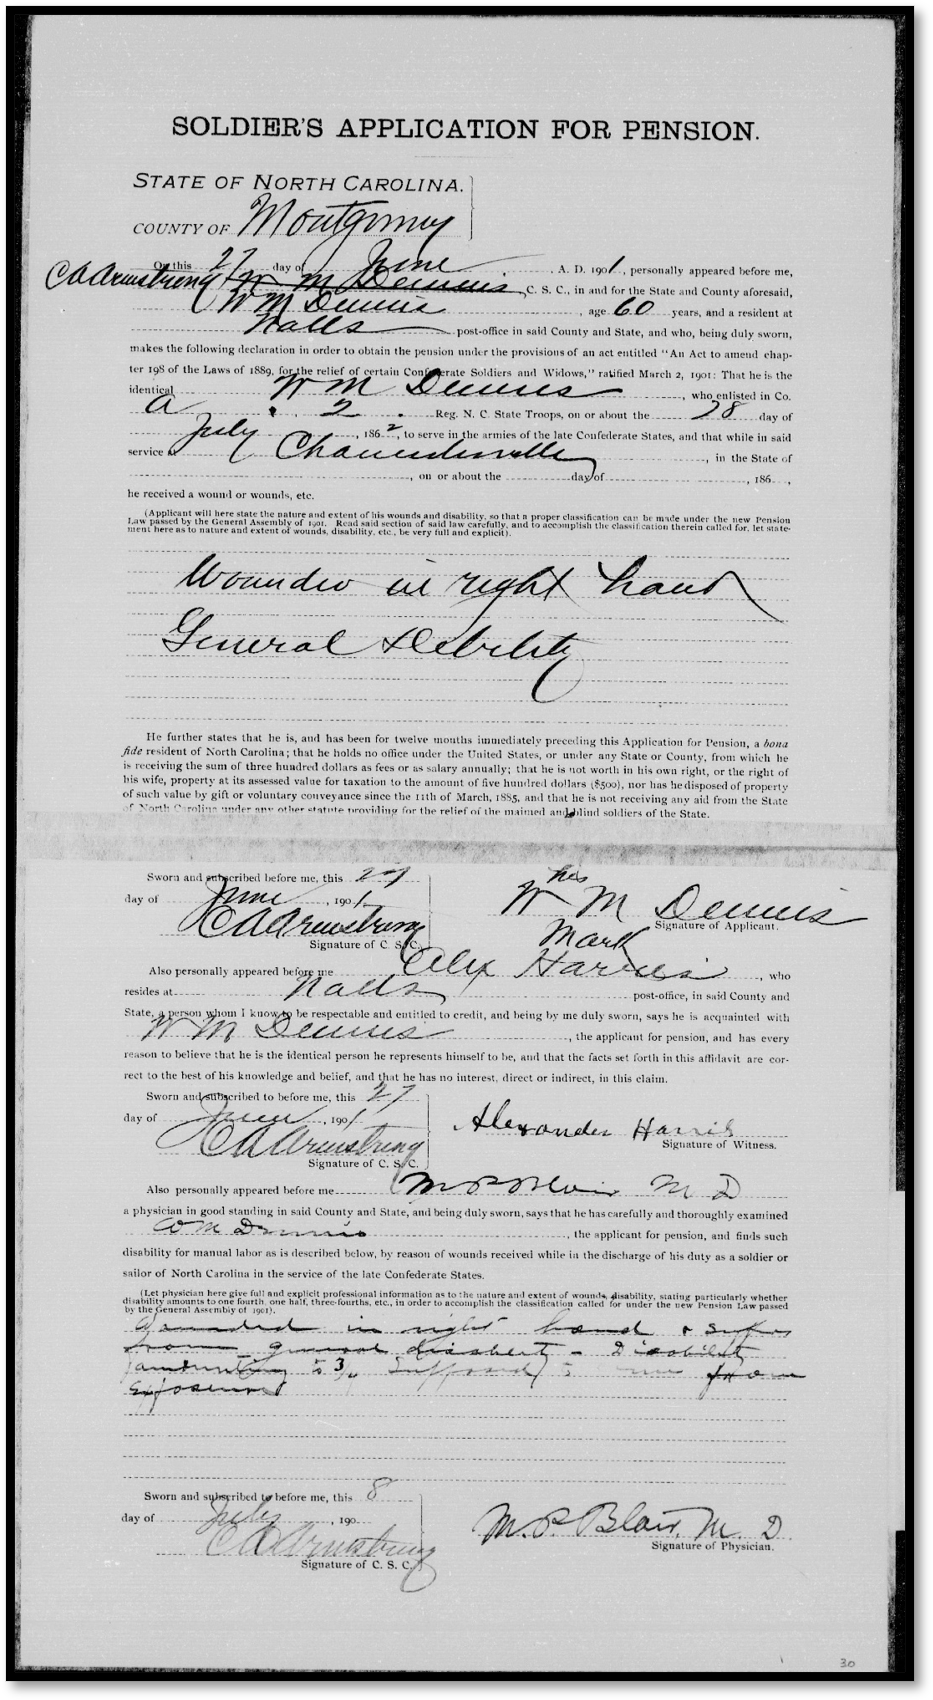 SOLDIER'S APPLICATION FOR PENSION.
STATE OF NORTH CAROLINA.
COUNTY OF Montgomery
On this 27 day of June A. D. 1901, personally appeared before me,
C A Armstrong W M Dennis, C. S. C., in and for the State and County aforesaid,
W M Dennis, age 60 years, and a resident at
Nalls post-office in said County and State, and who, being duly sworn,
makes the following declaration in order to obtain the pension under the provisions of an act entitled "An Act to amend chap-
ter 198 of the Laws of 1889, for the relief of certain Confederate Soldiers and Widows," ratified March 2, 1901: That he is the
identical W M Dennis, who enlisted in Co.
A 2 Reg. N. C. State Troops, on or about the 28 day of
July, 1862, to serve in the armies of the late Confederate States, and that while in said
service at, in the State of
, on or about the day of, 186 ,
he received a wound or wounds, etc.
(Applicant will here state the nature and extent of his wounds and disability, so that a proper classification can be made under the new Pension
Law passed by the General Assembly of 1901. Read said section of said law carefully, and to accomplish the classification therein called for, let state-
ment here as to nature and extent of wounds, disability, etc., be very full and explicit).
Wounded in right hand
General Debility
He further states that he is, and has been for twelve months immediately preceding this Application for Pension, a bona
fide resident of North Carolina; that he holds no office under the United States, or under any State or County, from which he
is receiving the sum of three hundred dollars as fees or as salary annually; that he is not worth in his own right, or the right of
his wife, property at its assessed value for taxation to the amount of five hundred dollars ($500), nor has he disposed of property
of such value by gift or voluntary conveyance since the 11th of March, 1885, and that he is not receiving any aid from the State
of North Carolina under any other statute providing for the relief of the maimed and blind soldiers of the State.
Sworn and subscribed before me, this 27
day of June, 1901
C A Armstrong
Signature of C. S. C.
his
W M Dennis
Signature of Applicant.
Mark
Also personally appeared before me Alex Harris, who
resides at Nalls post-office, in said County and
State, a person whom I know to be respectable and entitled to credit, and being by me duly sworn, says he is acquainted with
W M Dennis, the applicant for pension, and has every
reason to believe that he is the identical person he represents himself to be, and that the facts set forth in this affidavit are cor-
rect to the best of his knowledge and belief, and that he has no interest, direct or indirect, in this claim.
Sworn and subscribed to before me, this 27
day of June, 1901
C A Armstrong
Signature of C. S. C.
Alexander Harris
Signature of Witness.
Also personally appeared before me M P Blair M D
a physician in good standing in said County and State, and being duly sworn, says that he has carefully and thoroughly examined
W M Dennis, the applicant for pension, and finds such
disability for manual labor as is described below, by reason of wounds received while in the discharge of his duty as a soldier or
sailor of North Carolina in the service of the late Confederate States.
(Let physician here give full and explicit professional information as to the nature and extent of wounds, disability, stating particularly whether
disability amounts to one fourth, one half, three-fourths, etc., in order to accomplish the classification called for under the new Pension Law passed
by the General Assembly of 1901).
Wounded in right hand & suffers
from general - Disability
amounting to 3/4 from
exposure
Sworn and subscribed to before me, this 8
day of July, 190
C A Armstrong
Signature of C. S. C.
M. P. Blair, M. D.
Signature of Physician.
30